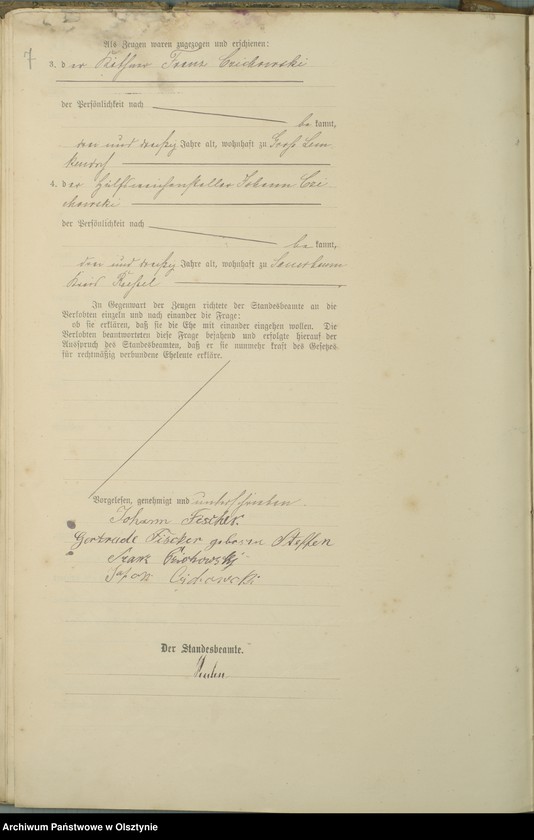 7
Als Zeugen waren zugezogen und erschienen:
3. der Franz Czichowski
der Persönlichkeit nach
be kannt,
drei und dreißig Jahre alt, wohnhaft zu Groß Lem-
kendorf
4. der Hülfsweichensteller Johann Czi-
chowski
der Persönlichkeit nach
be kannt,
drei und dreißig Jahre alt, wohnhaft zu
Kreis Rößel
In Gegenwart der Zeugen richtete der Standesbeamte an die
Verlobten einzeln und nach einander die Frage:
ob sie erklären, daß sie die Ehe mit einander eingehen wollen. Die
Verlobten beantworteten diese Frage bejahend und erfolgte hierauf der
Ausspruch des Standesbeamten, daß er sie nunmehr kraft des Gesetzes
für rechtmäßig verbundene Eheleute erkläre.
Vorgelesen, genehmigt und unterschrieben.
Johann Fischer.
Gertrude Fischer geboren Steffen
Franz Czichowski
Der Standesbeamte.
Archiwum Państwowe w Olsztynie